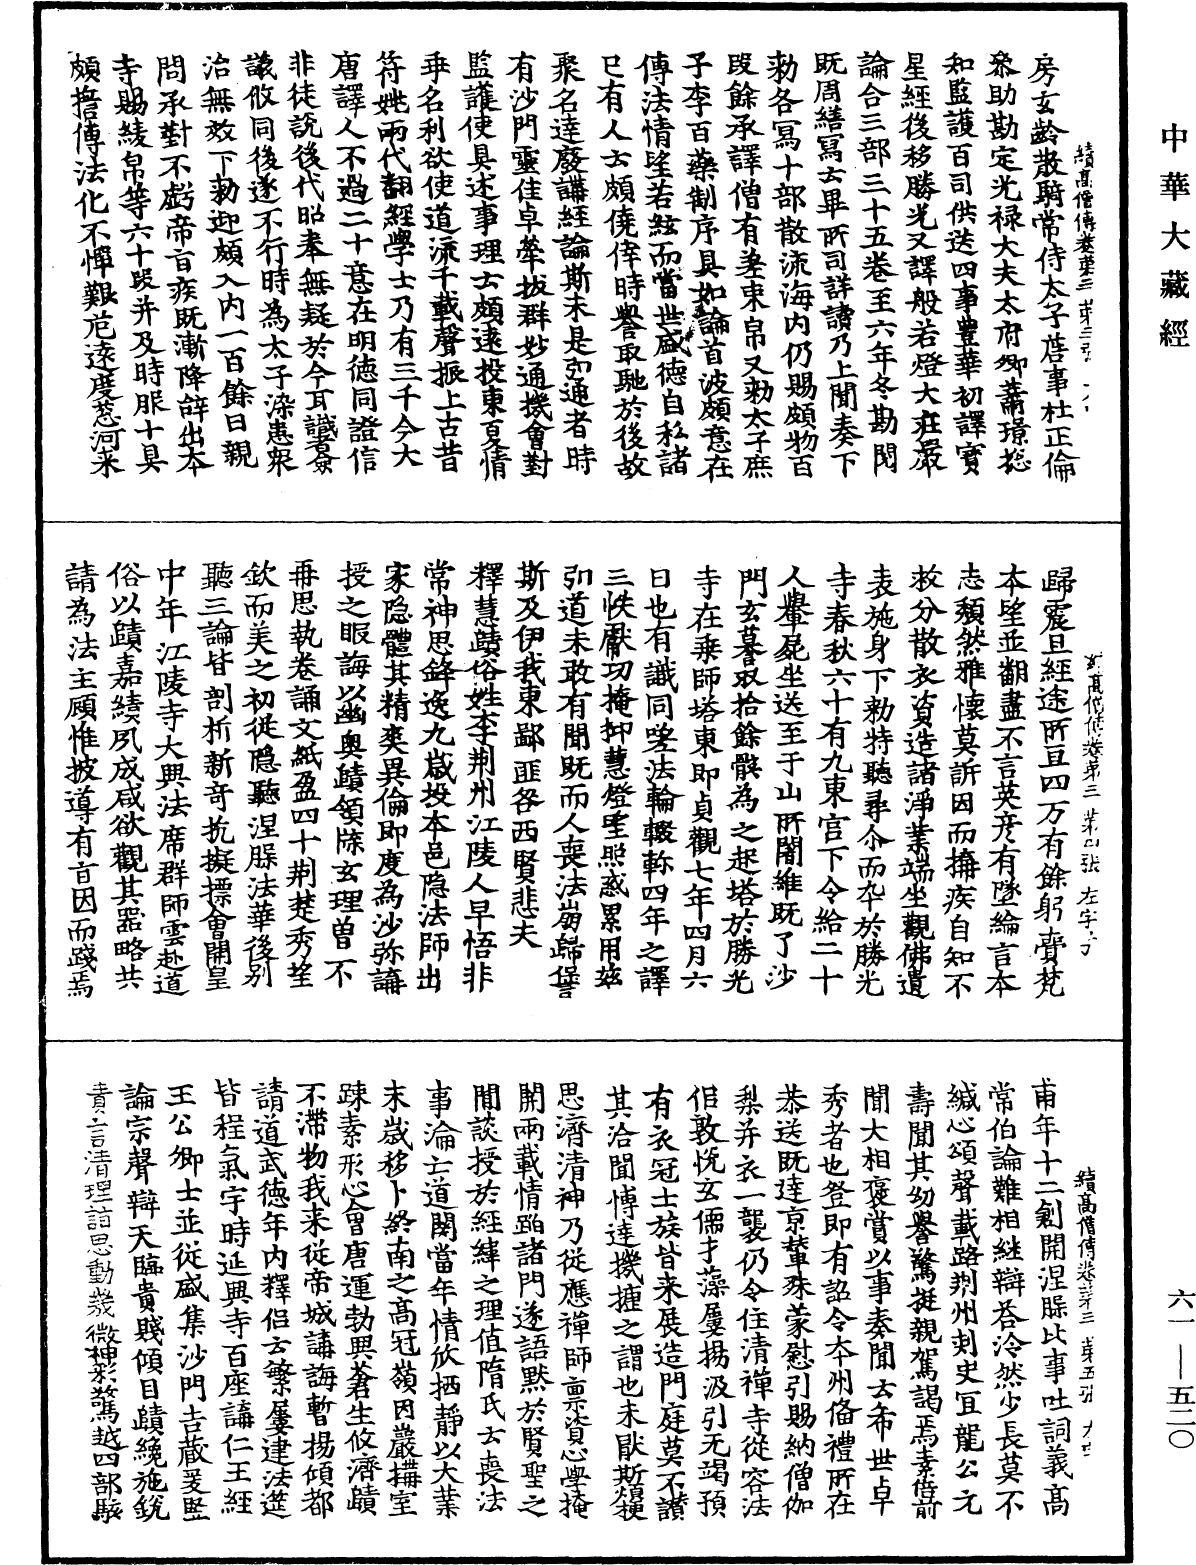 中華大藏經
續高僧傳卷第三 第三張
房玄齡散騎常侍太子詹事杜正倫
叅助勘定光禄大夫太府卿蕭璟揔
知監護百司供送四事豐華初譯寶
星經後移勝光又譯般若燈大莊嚴
論合三部三十五卷至六年冬勘閱
既周繕寫云畢所司詳讀乃上聞奏下
勑各寫十部散流海内仍賜頗物百
段餘承譯僧有差束帛又勑太子庶
子李百藥制序具如論首波頗意在
傳法情望若絃而當世盛德自私諸
已有人云頗僥倖時譽取馳於後故
聚名達廢講經論斯未是弘通者時
有沙門靈佳卓犖拔群妙通機會對
監護使具述事理云頗遠投東夏情
乖名利欲使道流千載聲振上古昔
符姚兩代翻經學士乃有三千今大
唐譯人不過二十意在明德同證信
非徒說後代昭奉無疑於今耳識者僉
議攸同後遂不行時為太子染患衆
治無效下勑迎頗入内一百餘日親
問承對不虧帝旨疾既漸降辭出本
寺賜綾帛等六十段并及時服十具
頗擔傳法化不憚艱危遠度葱河来
續高僧傳卷第三 第四張 左字号
歸震旦經途所亘四万有餘躬賷梵
本望並翻盡不言英彥有墜綸言本
志頹然雅懷莫訴因而搆疾自知不
救分散衣資造諸淨業端坐觀佛遺
表施身下勑特聽尋尒而卒於勝光
寺春秋六十有九東宫下令給二十
人轝屍坐送至于山所闍維既了沙
門玄謩收拾餘骸為之起塔於勝光
寺在乗師塔東即貞觀七年四月六
日也有識同嗟法輪輟軫四年之譯
三帙獻功掩抑慧燈望照惑累用兹
弘道未敢有聞既而人喪法崩歸堡誓
斯及伊我東鄙匪咎西賢悲夫
釋慧賾俗姓李荆州江陵人早悟非
常神思鋒逸九歲投本邑隐法師出
家隐體其精爽異倫即度為沙弥論
授之眼誨以幽奥賾領牒玄理曾不
再思執卷誦文紙盈四十荆楚秀望
欽而美之初從隐聽涅槃法華後别
聽三論皆剖析新竒抗擬標會開皇
中年江陵寺大興法席群師雲赴道
俗以賾嘉績夙成咸欲觀其器略共
請為法主顧惟披導有旨因而踐焉
續高僧傳卷第三 第五張
甫年十二創開涅槃比事吐詞義高
常伯論難相継辯荅泠然少長莫不
緘心頌聲載路荆州刺史宜龍公元
壽聞其幼譽驚挺親駕謁焉素偣前
聞大相褒賞以事奏聞云希世卓
秀者也登即有詔令本州俻禮所在
恭送既達京輦殊蒙慰引賜納僧伽
梨并衣一襲仍令住清禪寺從容法
侶敦悅玄儒才藻屢揚汲引无竭預
有衣冠士族皆来展造門庭莫不讃
其洽聞博達機捷之謂也未厭斯煩梗
思濟清神乃從應禪師禀資心學掩
關兩載情踰諸門遂語黙於賢聖之
間談授於經緯之理值隋氏云喪法
事淪亡道閡當年情欣栖静以大業
末歲移卜終南之高冠嶺因巖搆室
踈素形心會唐運勃興蒼生攸濟賾
不滯物我来從帝城講誨暫揚傾都
請道武德年内釋侣云繁屢建法莚
皆程氣宇時延興寺百座講仁王經
王公卿士並從盛集沙門吉蔵爰竪
論宗聲辯天臨貴賤傾目賾纔施銳
責言清理詣思動幾微神彩驚越四部駭
六一—五二〇